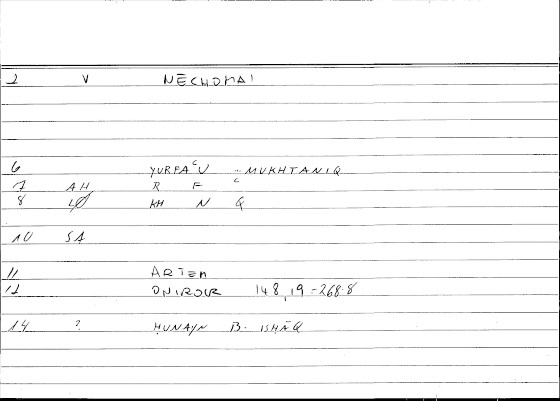 2 V NĒCHOMAI
6 YURFAᶜU -MUKHTANIQ
7 AH R F ᶜ
8 LØ KH N Q
10 SA
11 ARTEM
12 ONIROCR 148,19-268.8
14 ? ḤUNAYN B. ISḤĀQ